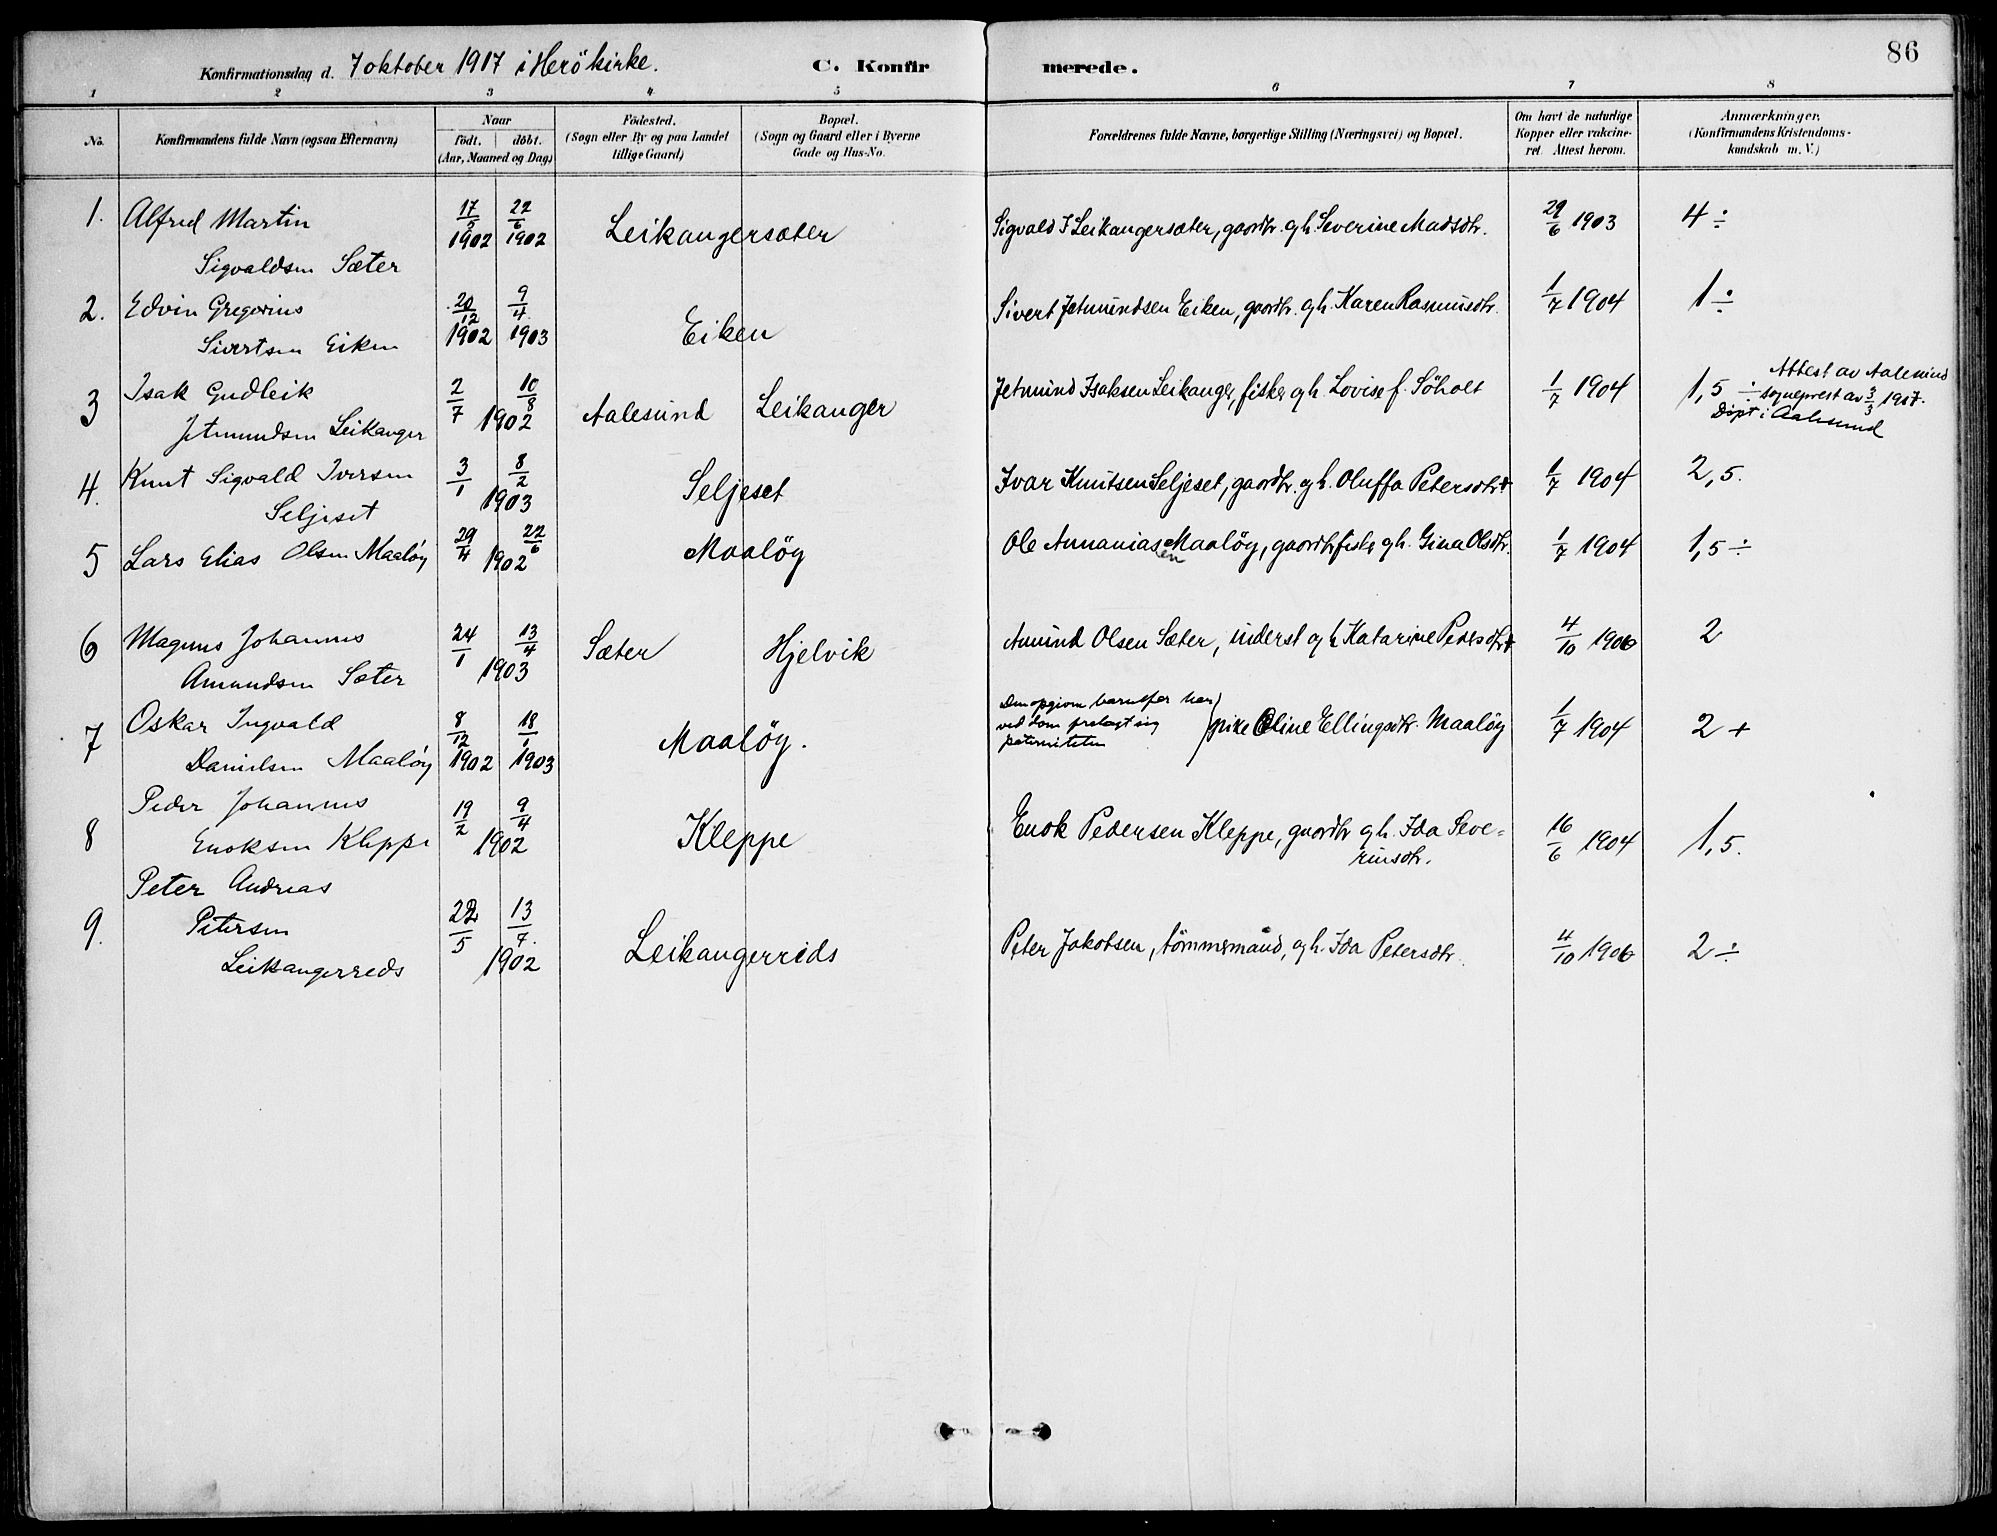 86
Konfirmationsdag d. 7 oktober 1917 i Herö kirke. C. Konfir merede.
1 2 3 4 5 6 7 8
No. Konfirmandens fulde Navn (ogsaa Efternavn) Naar födt. döbt. (Aar, Maaned og Dag) Födested. (Sogn eller By og paa Landet tillige Gaard) Bopæl. (Sogn og Gaard eller i Byerne Gade og Hus-No. Forældrenes fulde Navne, borgerlige Stilling (Næringsvei) og Bopæl. Om havt de naturlige Kopper eller vakcineret. Attest herom. Anmærkninger, (Konfirmandens Kristendomskundskab m. V.)
1. Alfred Martin 17/5 1902 22/6 1902 Leikangersæter Sigvald I Leikangersæter, gaardbr. gh. Severine Madsdtr. 29/6 1903 4 ÷
Sigvaldsen Sæter
2. Edvin Gregorius 20/12 1902 9/4 1903 Eiken Sivert Jetmundsen Eiken, gaardbr. gh. Karen Rasmusdtr. 1/7 1904 1 ÷
Sivertsen Eiken
3 Isak Gudleik 2/7 10/8 1902 Aalesund Leikanger Jetmund Isaksen Leikanger, fisker gh. Lovise f. Söholt 1/7 1904 1,5 ÷ Attest av Aalesund
sogneprest av 3/3 1917.
Döpt i Aalesund
Jetmundsen Leikanger
4. Knut Sigvald Iversen 3/1 8/2 1903 Seljeset Ivar Knutsen Seljeset, gaardbr. gh. Oluffa Petersdtr + 1/7 1904 2,5.
Seljeset
5 Lars Elias Olsen Maalöy 29/4 22/6 1902 Maalöy Ole Annaniassen Maalöy, gaardbr fisker gh. Gina Olsdtr. 1/7 1904 1,5 ÷
6 Magnus Johannes 24/1 13/4 1903 Sæter Hjelvik Amund Olsen Sæter, inderst gh Katarine Petersdtr + 4/10 1906 2
Amundsen Sæter
7 Oskar Ingvald 8/12 1902 18/1 1903 Maalöy. Den opgivne barnefar har
ved dom fralagt sig
paterniteten pike Oline Ellingsdtr. Maalöy 1/7 1904 2 +
Danielsen Maalöy
8 Peder Johannes 19/2 9/4 1902 Kleppe Enok Pedersen Kleppe, gaardbr gh. Ida Seve=
rinsdtr. 16/6 1904 1,5.
Enoksen Kleppe
9. Peter Andreas 22/5 13/7. 1902 Leikangerreids Peter Jakobsen, tömmermand, gh. Ida Petersdtr. 4/10 1906 2 ÷
Petersen
Leikangerreds